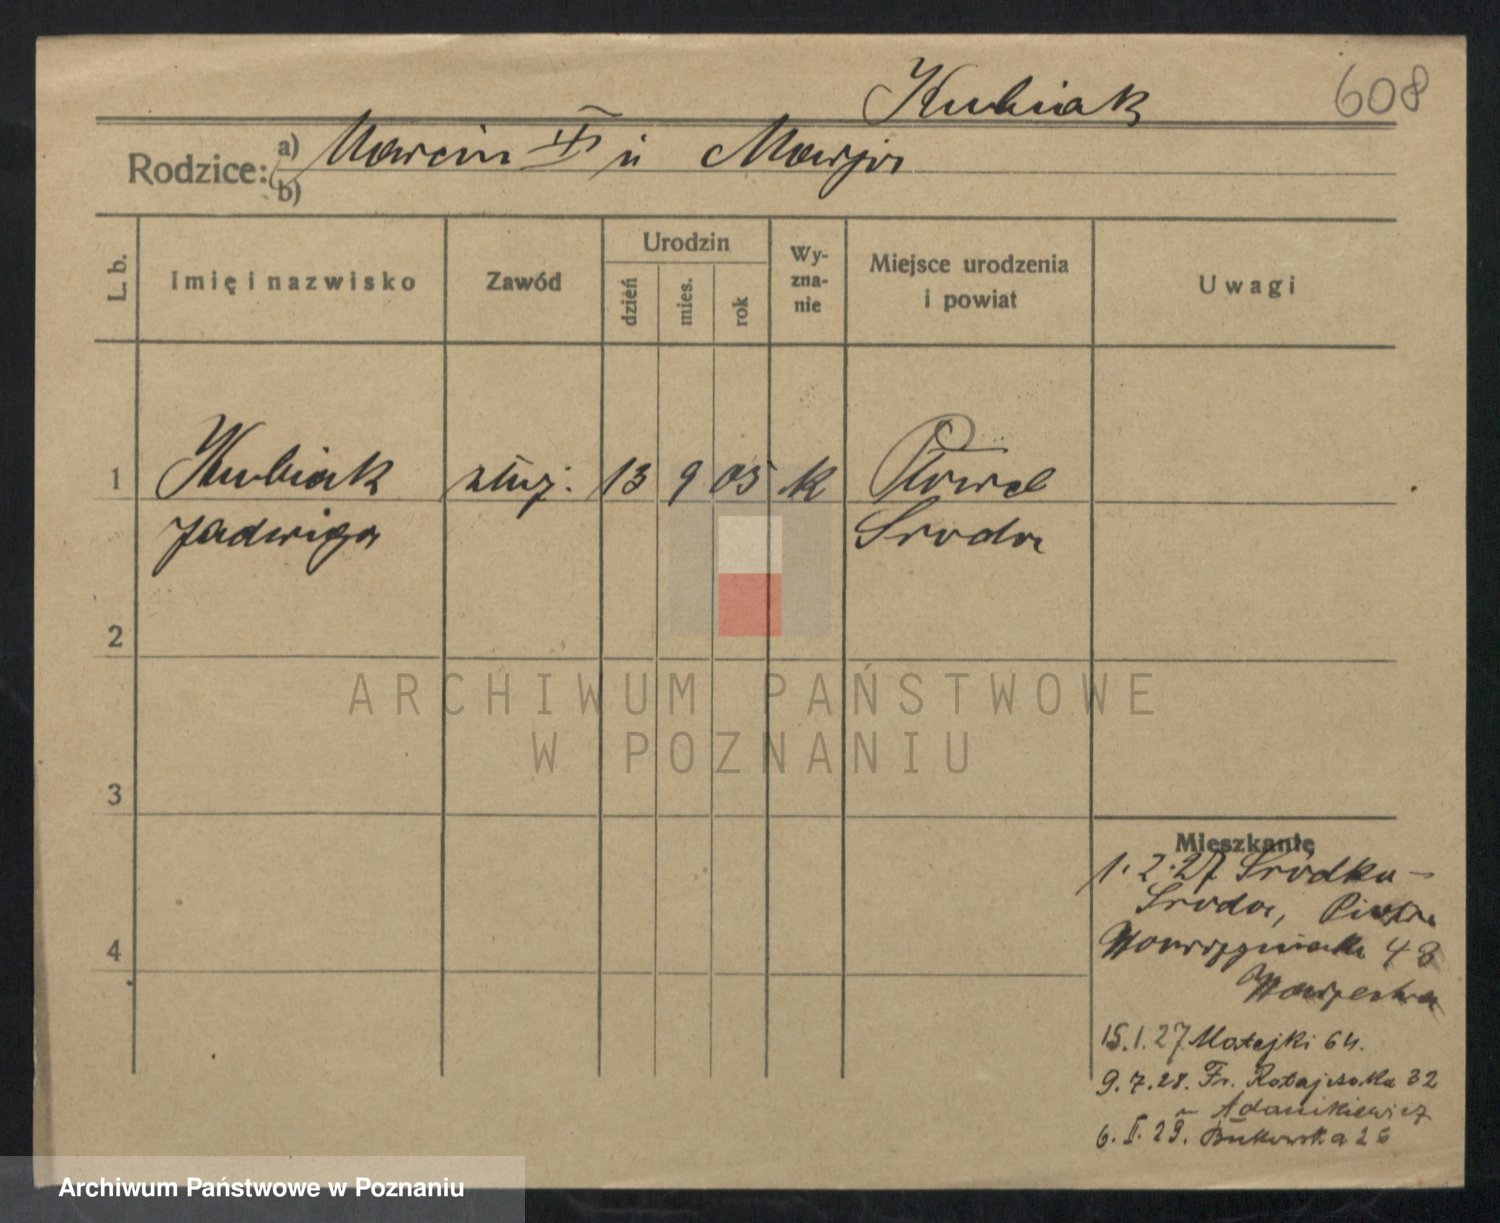 Kubiak 608
Rodzice: a) Marcin i Marja
b)
L. b. Imię i nazwisko Zawód Urodzin dzień mies. rok Wyznanie Miejsce urodzenia i powiat Uwagi
1 Kubiak służ. 13 9 05 k
Jadwiga Środa
2
3
4
ARCHIWUM PAŃSTWOWE
W POZNANIU
Mieszkanie
1.2.27 Śródka-
Środa, Piotra
Wawrzyniaka 48
15.1.27 Matejki 64.
9.7.28. Fr. Ratajczaka 32
Adamkiewicz
6.I.29. Bukowska 26
Archiwum Państwowe w Poznaniu